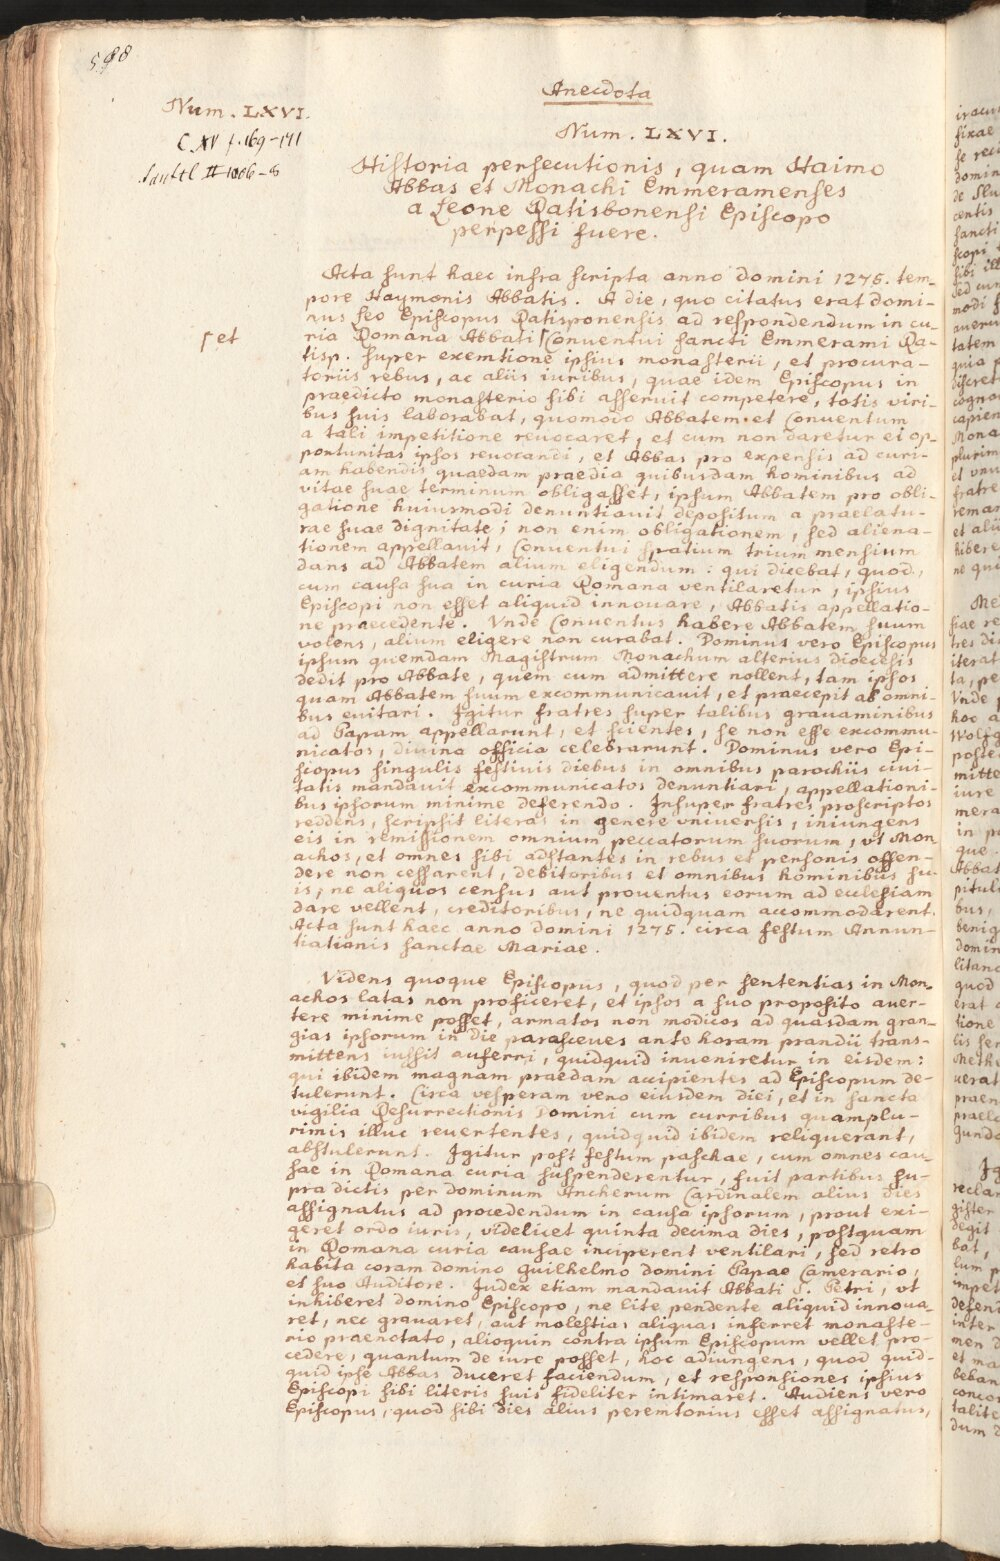 598
Anecdota
Num. LXVI.
Num. LXVI.
C. XV f. 169-171
II 1006-8
Historia persecutionis, quam Haimo
Abbas et Monachi Emmeramenses
a Leone Ratisbonensi Episcopo
perpessi fuere.
Acta sunt haec infra scripta anno domini 1275. tem-
pore Haymonis Abbatis. A die, quo citatus erat domi-
nus Leo Episcopus Ratisponensis ad respondendum in cu-
ria Romana Abbati ⌈Conventui sancti Emmerami Ra-
⌈et
tisp. super exemtione ipsius monasterii, et procura-
toriis rebus, ac aliis iuribus, quae idem Episcopus in
praedicto monasterio sibi asseruit competere, totis viri-
bus suis laborabat, quomodo Abbatem et Conuentum
a tali impetitione reuocaret, et cum non daretur ei op-
portunitas ipsos reuocandi, et Abbas pro expensis ad curi-
am habendis quaedam praedia quibusdam hominibus ad
vitae suae terminum obligasset, ipsum Abbatem pro obli-
gatione huiusmodi denuntiauit depositum a praelatu-
rae suae dignitate; non enim obligationem, sed aliena-
tionem appellauit, Conuentui spatium trium mensium
dans ad Abbatem alium eligendum: qui dicebat, quod,
cum causa sua in curia Romana ventilaretur, ipsius
Episcopi non esset aliquid innouare, Abbatis appellatio-
ne praecedente. Vnde Conuentus habere Abbatem suum
volens, alium eligere non curabat. Dominus vero Episcopus
ipsum quemdam Magistrum Monachum alterius dioecesis
dedit pro Abbate, quem cum admittere nollent, tam ipsos
quam Abbatem suum excommunicauit, et praecepit ab omni-
bus euitari. Igitur fratres super talibus grauaminibus
ad Papam appellarunt, et scientes, se non esse excommu-
nicatos, divina officia celebrarunt. Dominus vero Epi-
scopus singulis festiuis diebus in omnibus parochiis ciui-
tatis mandauit excommunicatos denuntiari, appellationi-
bus ipsorum minime deferendo. Insuper fratres proscriptos
reddens, scripsit literas in genere vniuersis, iniungens
eis in remissionem omnium peccatorum suorum, vt Mon
achos, et omnes sibi adstantes in rebus et personis offen-
dere non cessarent, debitoribus et omnibus hominibus su-
is, ne aliquos census aut prouentus eorum ad ecclesiam
dare vellent, creditoribus, ne quidquam accommodarent.
Acta sunt haec anno domini 1275. circa festum Annun-
tiationis sanctae Mariae.
Videns quoque Episcopus, quod per sententias in Mon-
achos latas non proficeret, et ipsos a suo proposito auer-
tere minime posset, armatos non modicos ad quasdam gran-
gias ipsorum in die parasceues ante horam prandii trans-
mittens iussit auferri, quidquid inueniretur in eisdem:
qui ibidem magnam praedam accipientes ad Episcopum de-
tulerunt. Circa vesperam vero eiusdem diei, et in sancta
vigilia Resurrectionis Domini cum curribus quamplu-
rimis illuc reuertentes, quidquid ibidem reliquerant,
abstulerunt. Igitur post festum paschae, cum omnes cau-
sae in Romana curia suspenderentur, fuit partibus su-
pra dictis per dominum Ancherum Cardinalem alius dies
assignatus ad procedendum in causa ipsorum, prout exi-
geret ordo iuris, videlicet quinta decima dies, postquam
in Romana curia causae inciperent ventilari, sed retro
habita coram domino Guilhelmo domini Papae Camerario,
et suo Auditore. Iudex etiam mandauit Abbati S. Petri, vt
inhiberet domino Episcopo, ne lite pendente aliquid innoua-
ret, nec grauaret, aut molestias aliquas inferret monaste-
rio praenotato, alioquin contra ipsum Episcopum vellet pro-
cedere, quantum de iure posset, hoc adiungens, quod quid-
quid ipse Abbas duceret faciendum, et responsiones ipsius
Episcopi sibi literis suis fideliter intimaret. Audiens vero
Episcopus, quod sibi dies alius peremtorius esset assignatus,